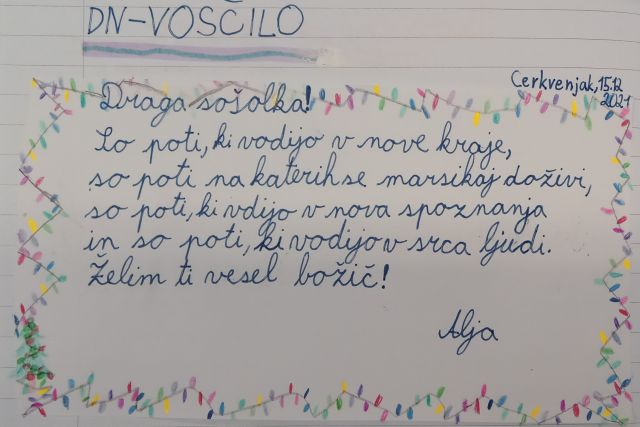 DN-VOŠČILO
Cerkvenjak, 15.12
2021
Draga sošolka!
So poti, ki vodijo v nove kraje,
so poti na katerih se marsikaj doživi,
so poti, ki vdijo v nova spoznanja
in so poti, ki vodijo v srca ljudi.
Želim ti vesel božič!
Alja